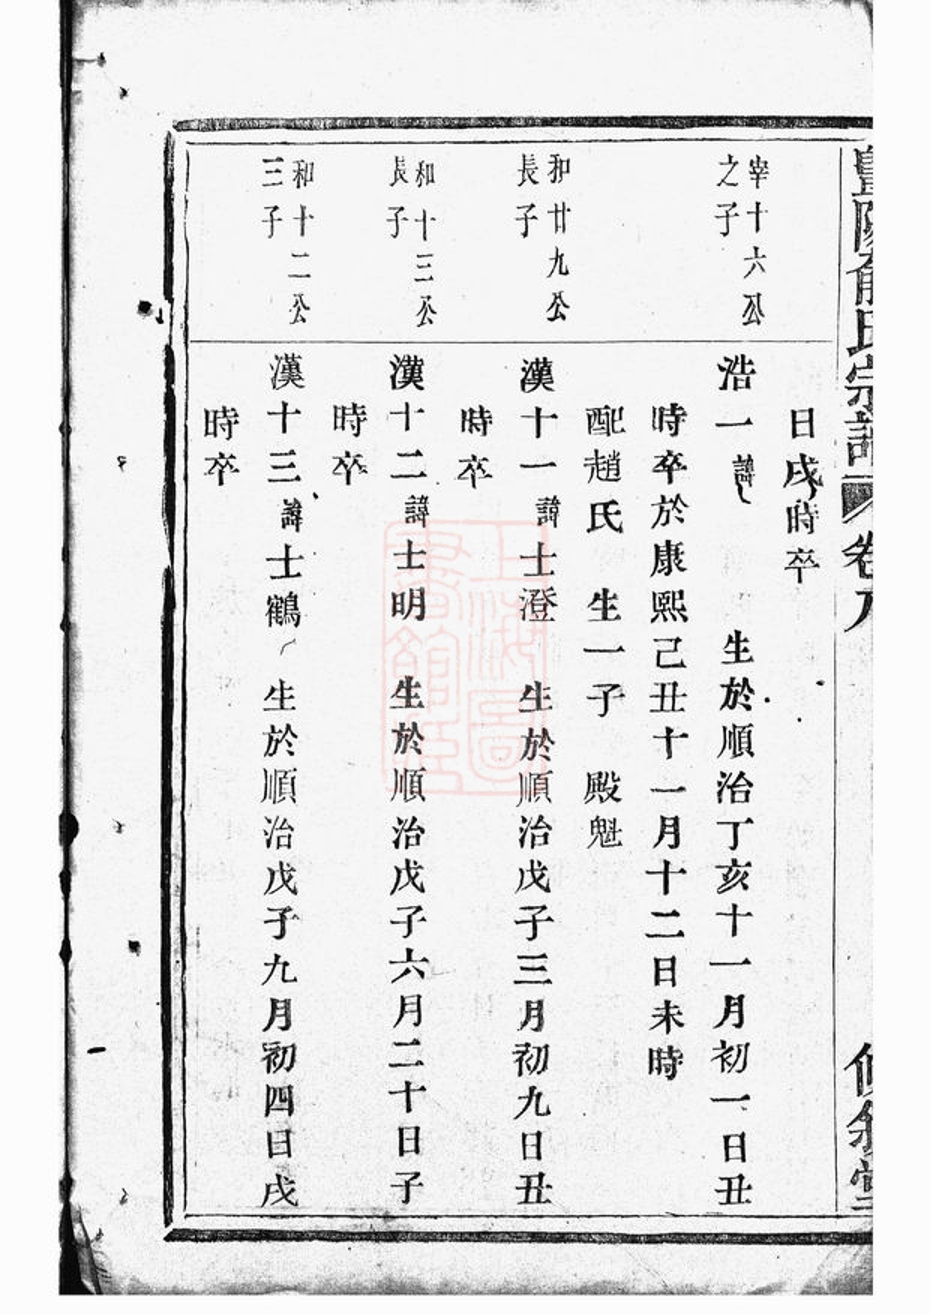 暨陽俞氏宗譜 卷八
日戌時卒
宰十六公
之子
浩一 諱 生於順治丁亥十一月初一日丑
時卒於康熙己丑十一月十二日未時
配趙氏 生一子 殿魁
和廿九公
長子
漢十一 諱士澄 生於順治戊子三月初九日丑
時卒
和十三公
長子
漢十二 諱士明 生於順治戊子六月二十日子
時卒
和十二公
三子
漢十三 諱士鶴 生於順治戊子九月初四日戌
時卒
上海圖
書館藏